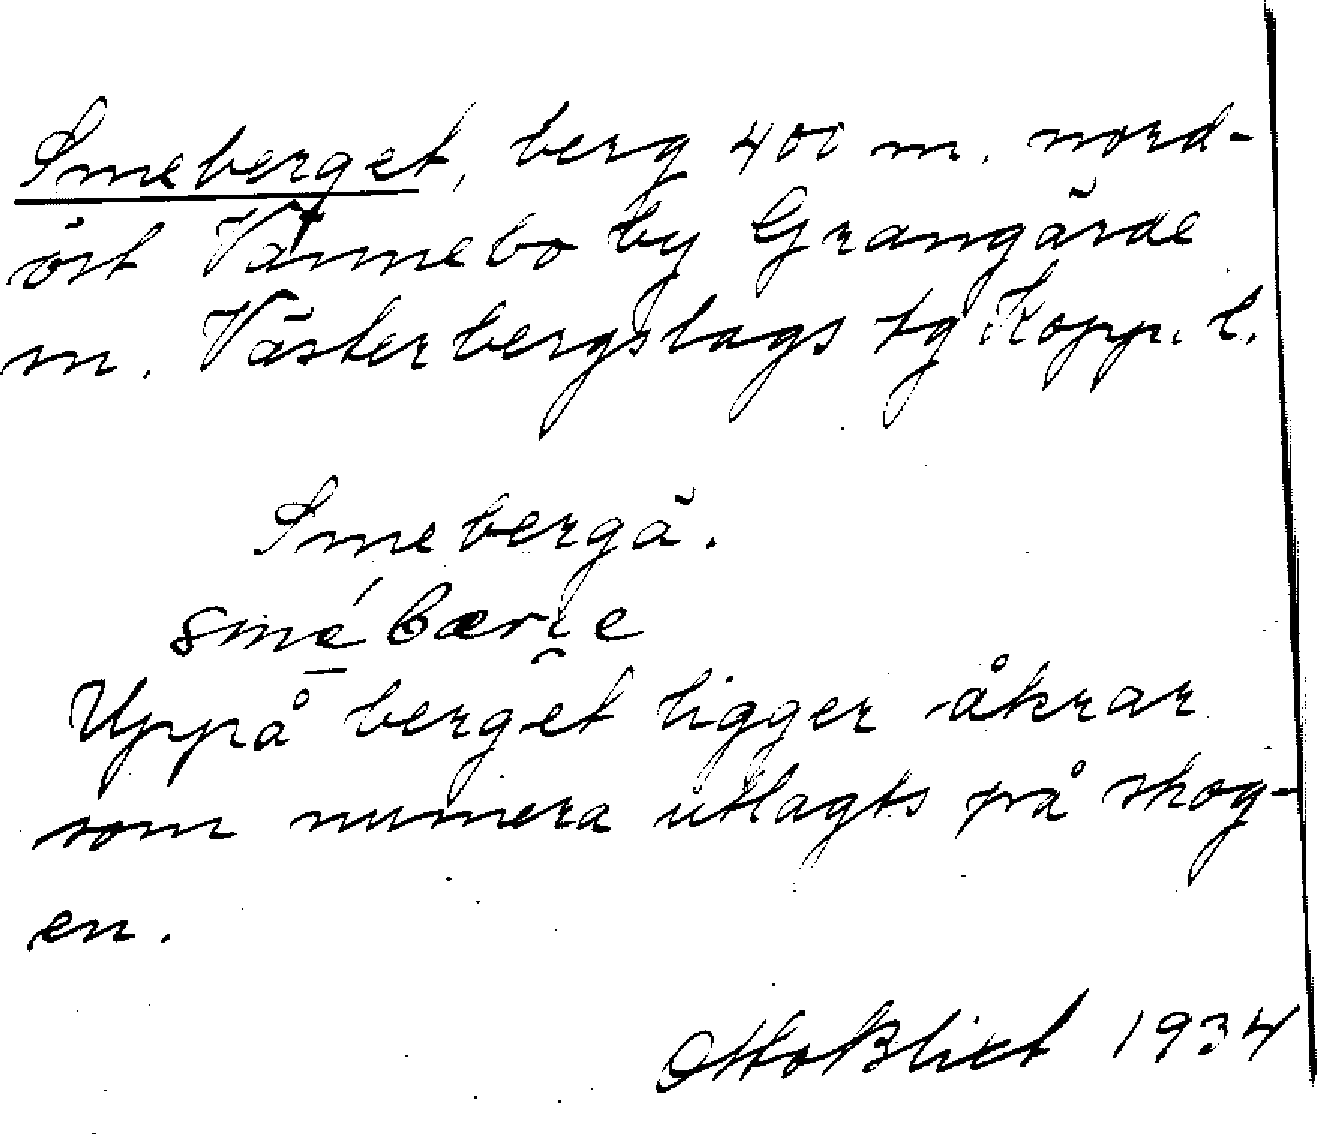 Smeberget, berg 400 m. nord-
öst Vännebo by Grangärde
m. Västerbergslags tg Kopp. l.
Smebergä.
smé̱ bæri̯e
Uppå berget ligger åkrar
som numera utlagts på skog-
en.
Otto Blixt 1934